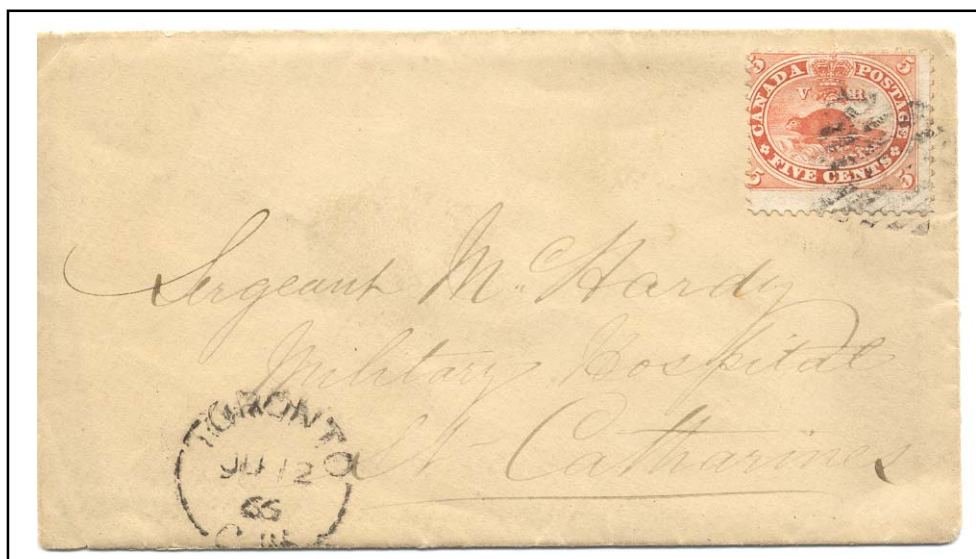 5 CANADA POSTAGE 5
V R
FIVE CENTS
5 5
Sergeant McHardy
Military Hospital
St Catharines
TORONTO
JU 12
66
C.W.